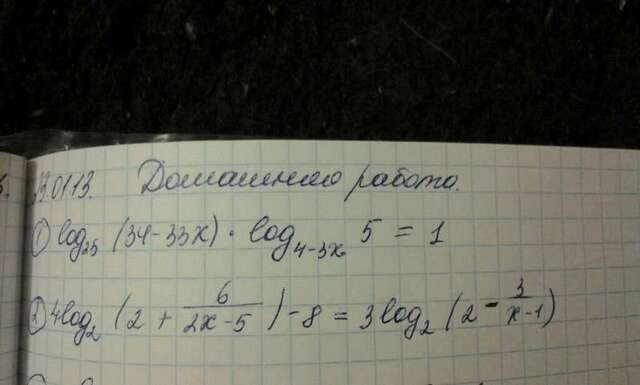 .0113. Домашнего работа.
① log₂₅ (34-33x) · log₄₋₃ₓ 5 = 1
② 4log₂ (2 + 6/(2x-5)) - 8 = 3log₂ (2 - 3/(x-1))